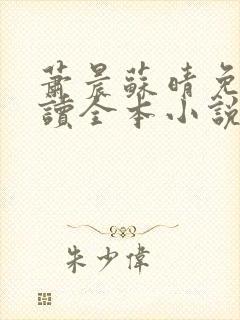 蕭晨蘇晴免
讀全本小説
朱少偉